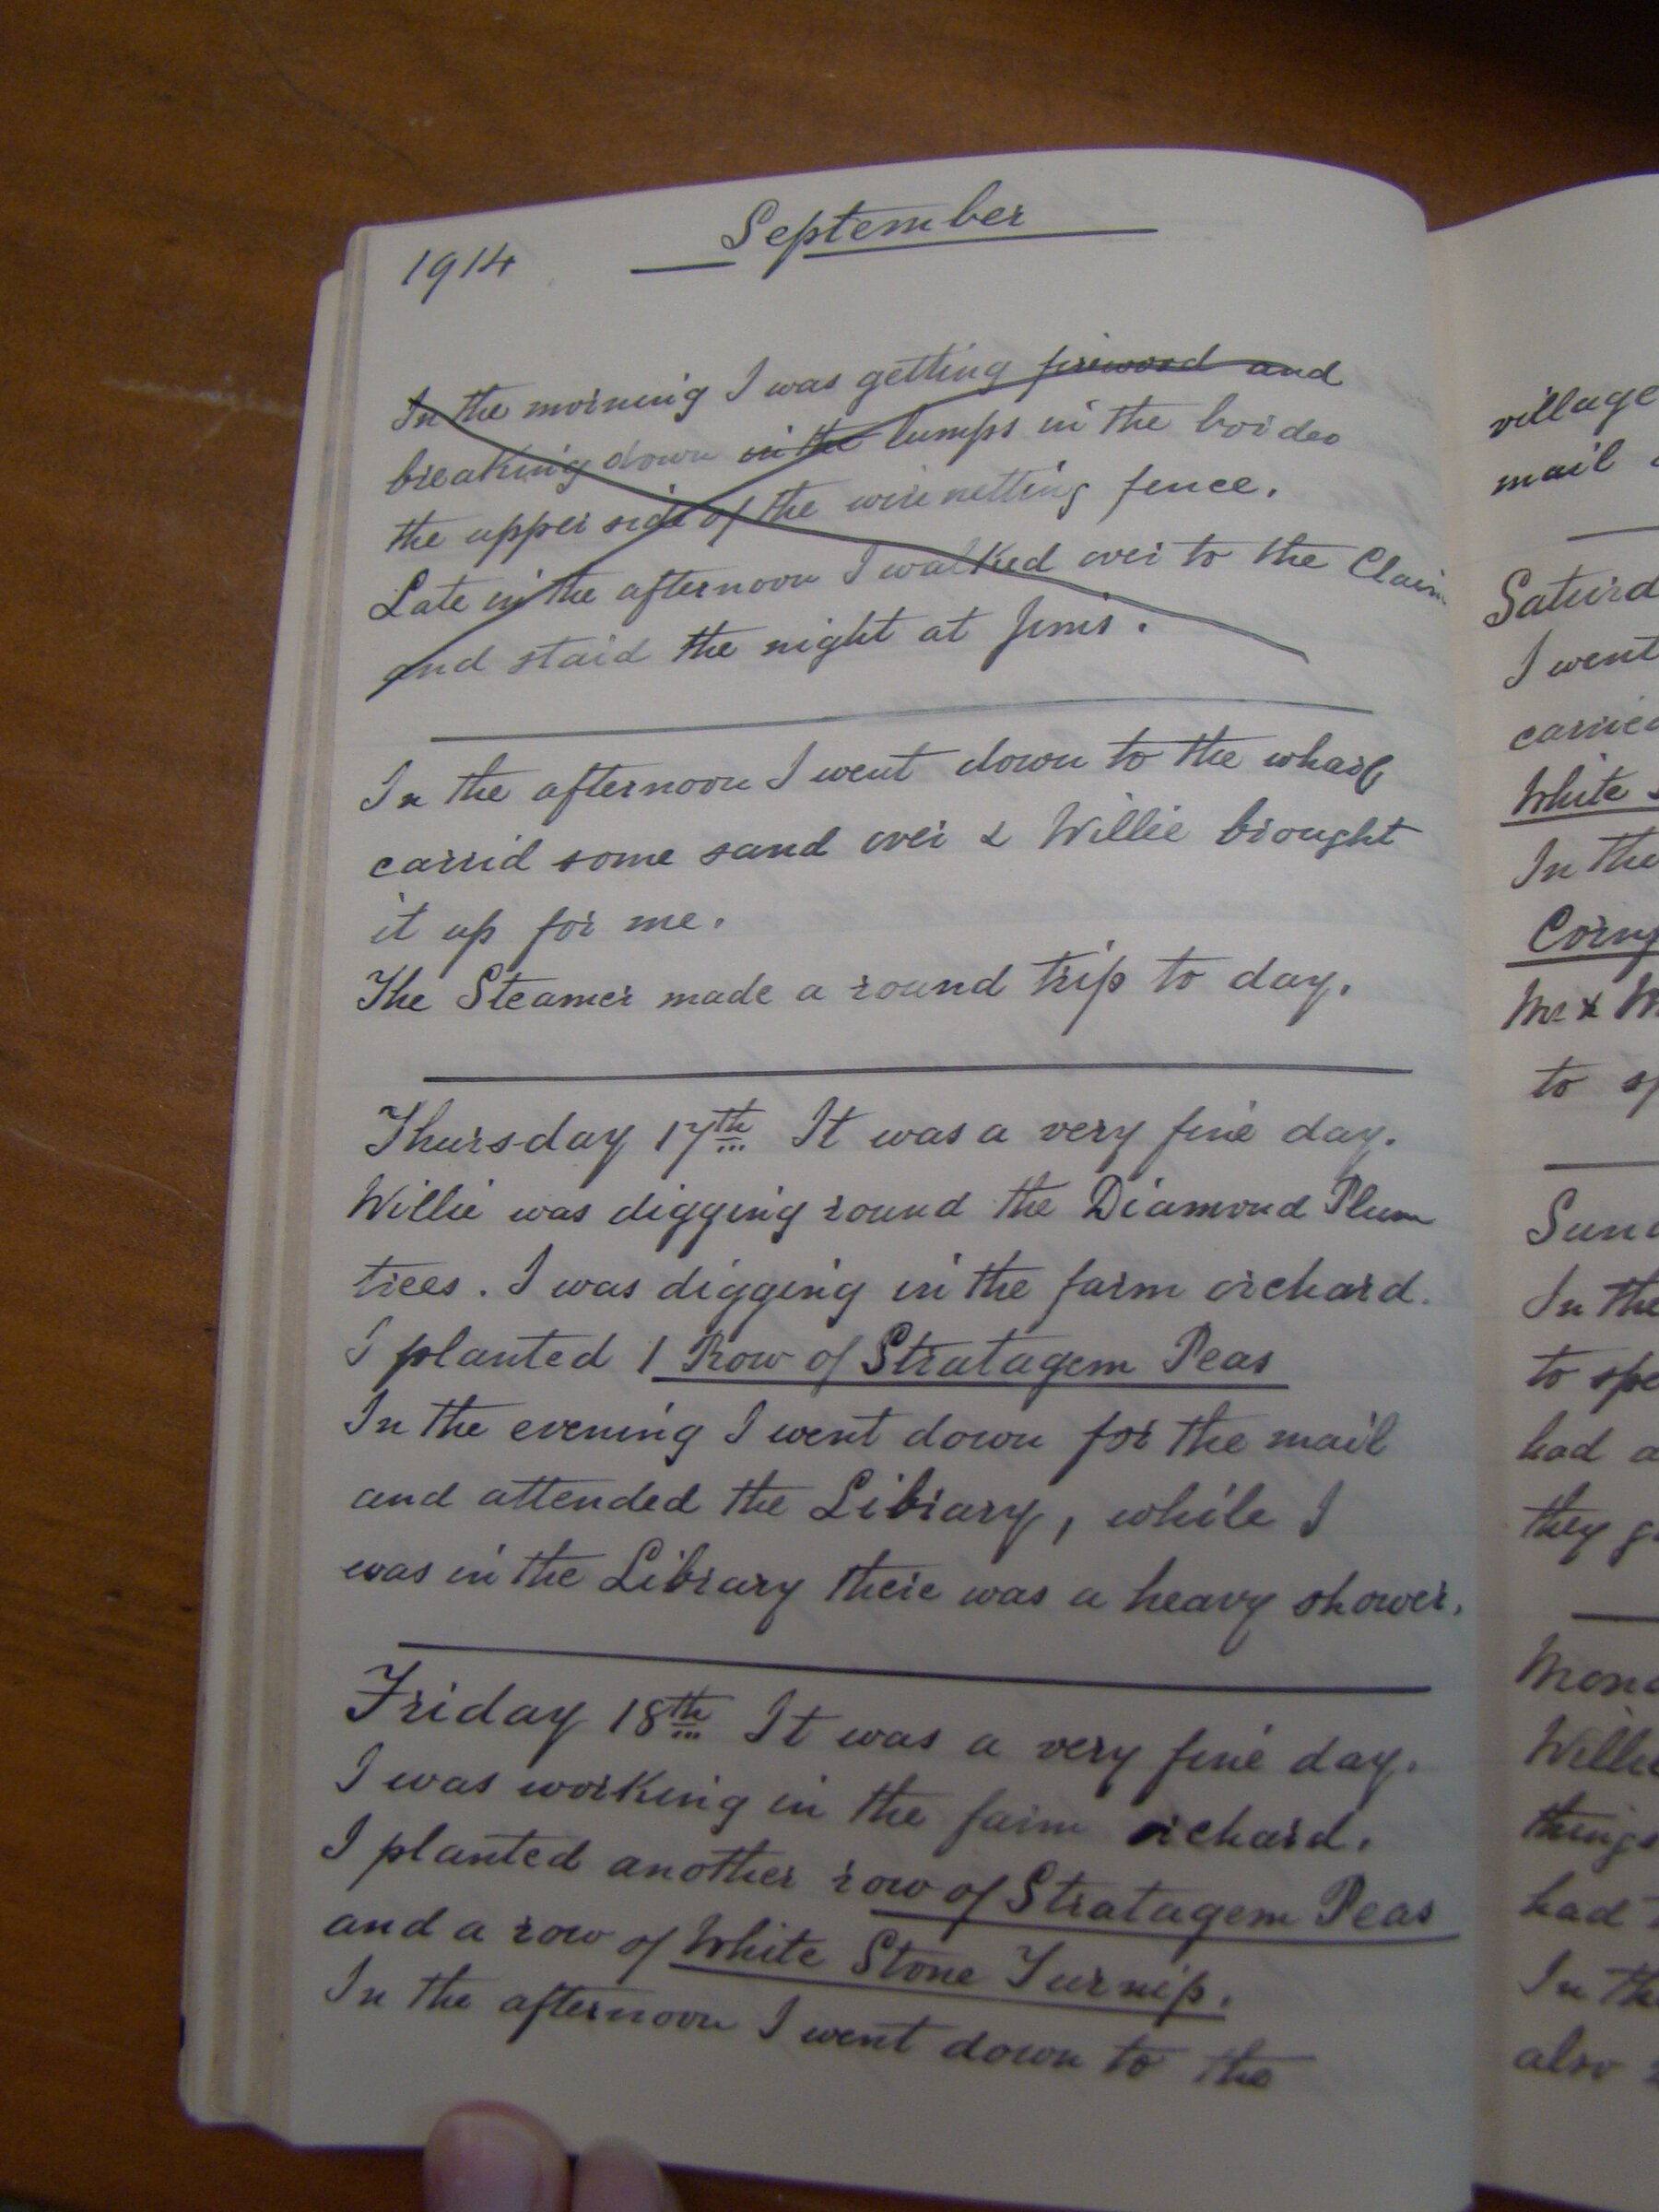 1914
September
In the morning I was getting firewood and
breaking down in the lumps in the border
the upper side of the wire netting fence.
Late in the afternoon I walked over to the Claim
and staid the night at Jims.
In the afternoon I went down to the wharf
carrid some sand over & Willie brought
it up for me.
The Steamer made a round trip to day.
Thursday 17th It was a very fine day.
Willie was digging round the Diamond Plum
trees. I was digging in the farm orchard.
I planted 1 Row of Stratagem Peas
In the evening I went down for the mail
and attended the Library, while I
was in the Library there was a heavy shower.
Friday 18th It was a very fine day.
I was working in the farm orchard.
I planted another row of Stratagem Peas
and a row of White Stone Turnip.
In the afternoon I went down to the
village
mail
Saturd
I went
carried
White
In the
Mr &
to sp
In the
to spe
had a
they g
Willie
things
had
In th
also